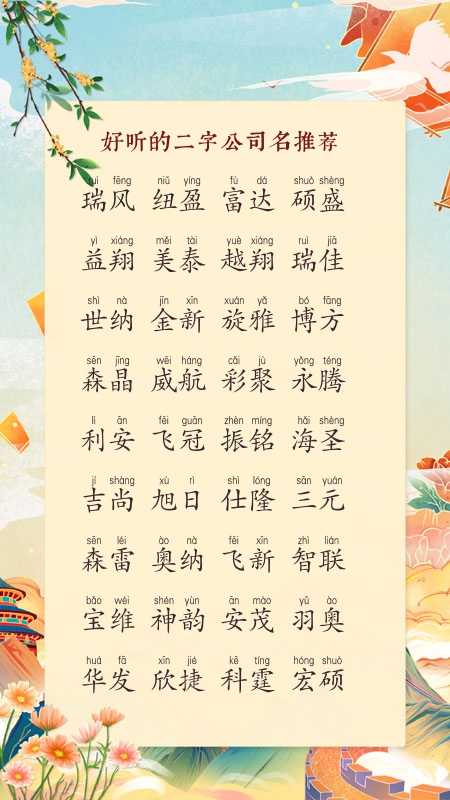 好听的二字公司名推荐
ruì fēng niǔ yíng fù dá shuò shèng
瑞风 纽盈 富达 硕盛
yì xiáng měi tài yuè xiáng ruì jiā
益翔 美泰 越翔 瑞佳
shì nà jīn xīn xuán yǎ bó fāng
世纳 金新 旋雅 博方
sēn jīng wēi háng cǎi jù yǒng téng
森晶 威航 彩聚 永腾
lì ān fēi guān zhèn míng hǎi shèng
利安 飞冠 振铭 海圣
jí shàng xù rì shì lóng sān yuán
吉尚 旭日 仕隆 三元
sēn léi ào nà fēi xīn zhì lián
森雷 奥纳 飞新 智联
bǎo wéi shén yùn ān mào yǔ ào
宝维 神韵 安茂 羽奥
huá fā xīn jié kē tíng hóng shuò
华发 欣捷 科霆 宏硕